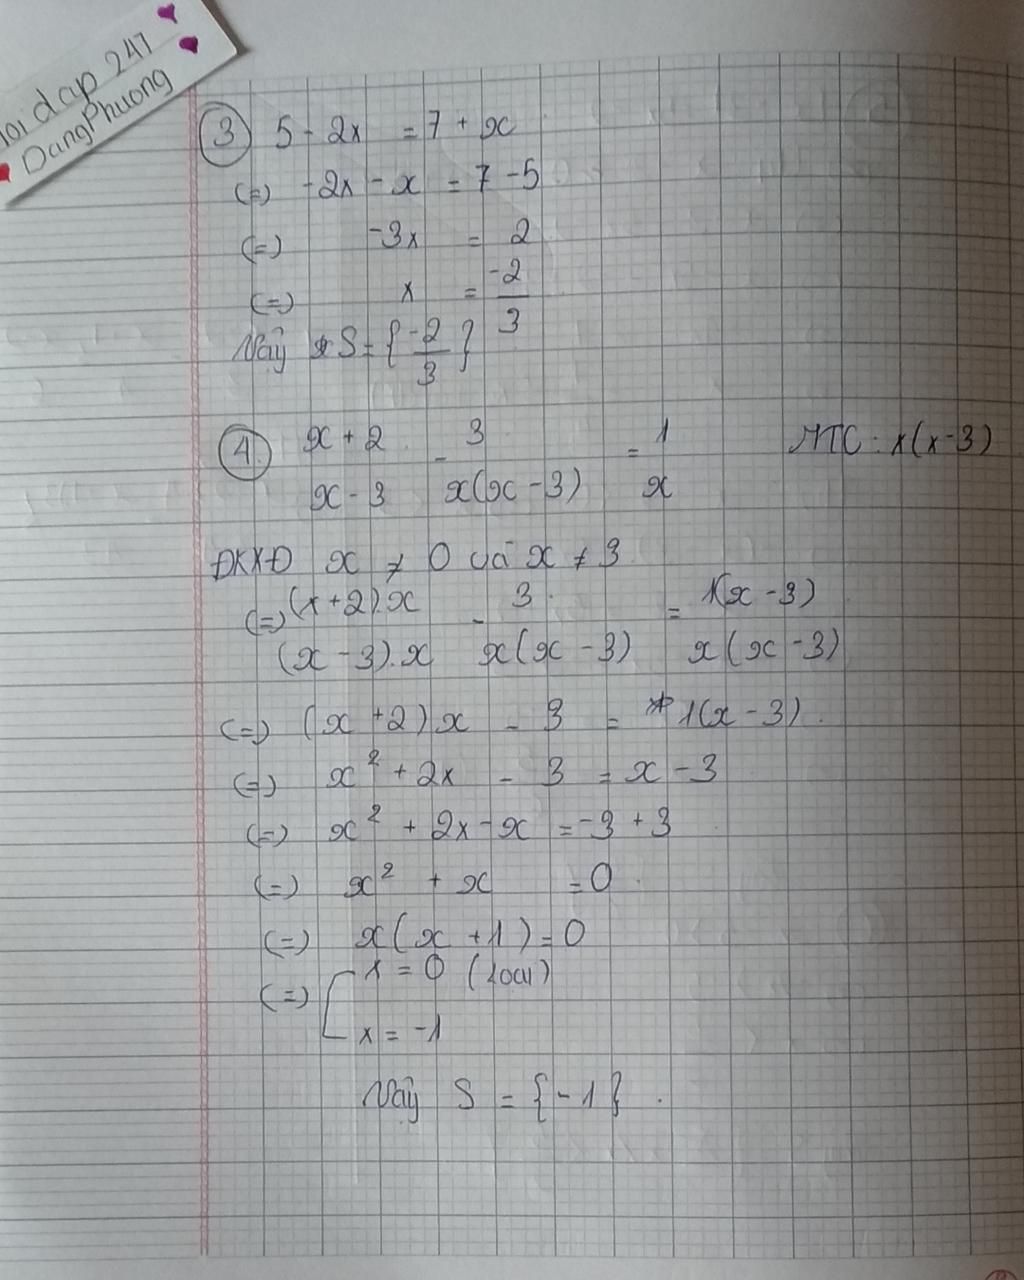 hoidap 247
DangPhuong
③ 5 - 2x = 7 + x
(=) -2x - x = 7 - 5
(=) -3x = 2
(=) x = -2/3
Vậy S = {-2/3}
④ x + 2 / x - 3 - 3 / x(x - 3) = 1 / x MTC : x(x-3)
ĐKXĐ x ≠ 0 và x ≠ 3
(=) (x+2).x / (x - 3).x - 3 / x(x - 3) = 1(x - 3) / x(x - 3)
(=) (x + 2)x - 3 = 1(x - 3).
(=) x² + 2x - 3 = x - 3
(=) x² + 2x - x = -3 + 3
(=) x² + x = 0
(=) x(x + 1) = 0
(=) [ x = 0 (loại)
x = -1
Vậy S = {-1}.